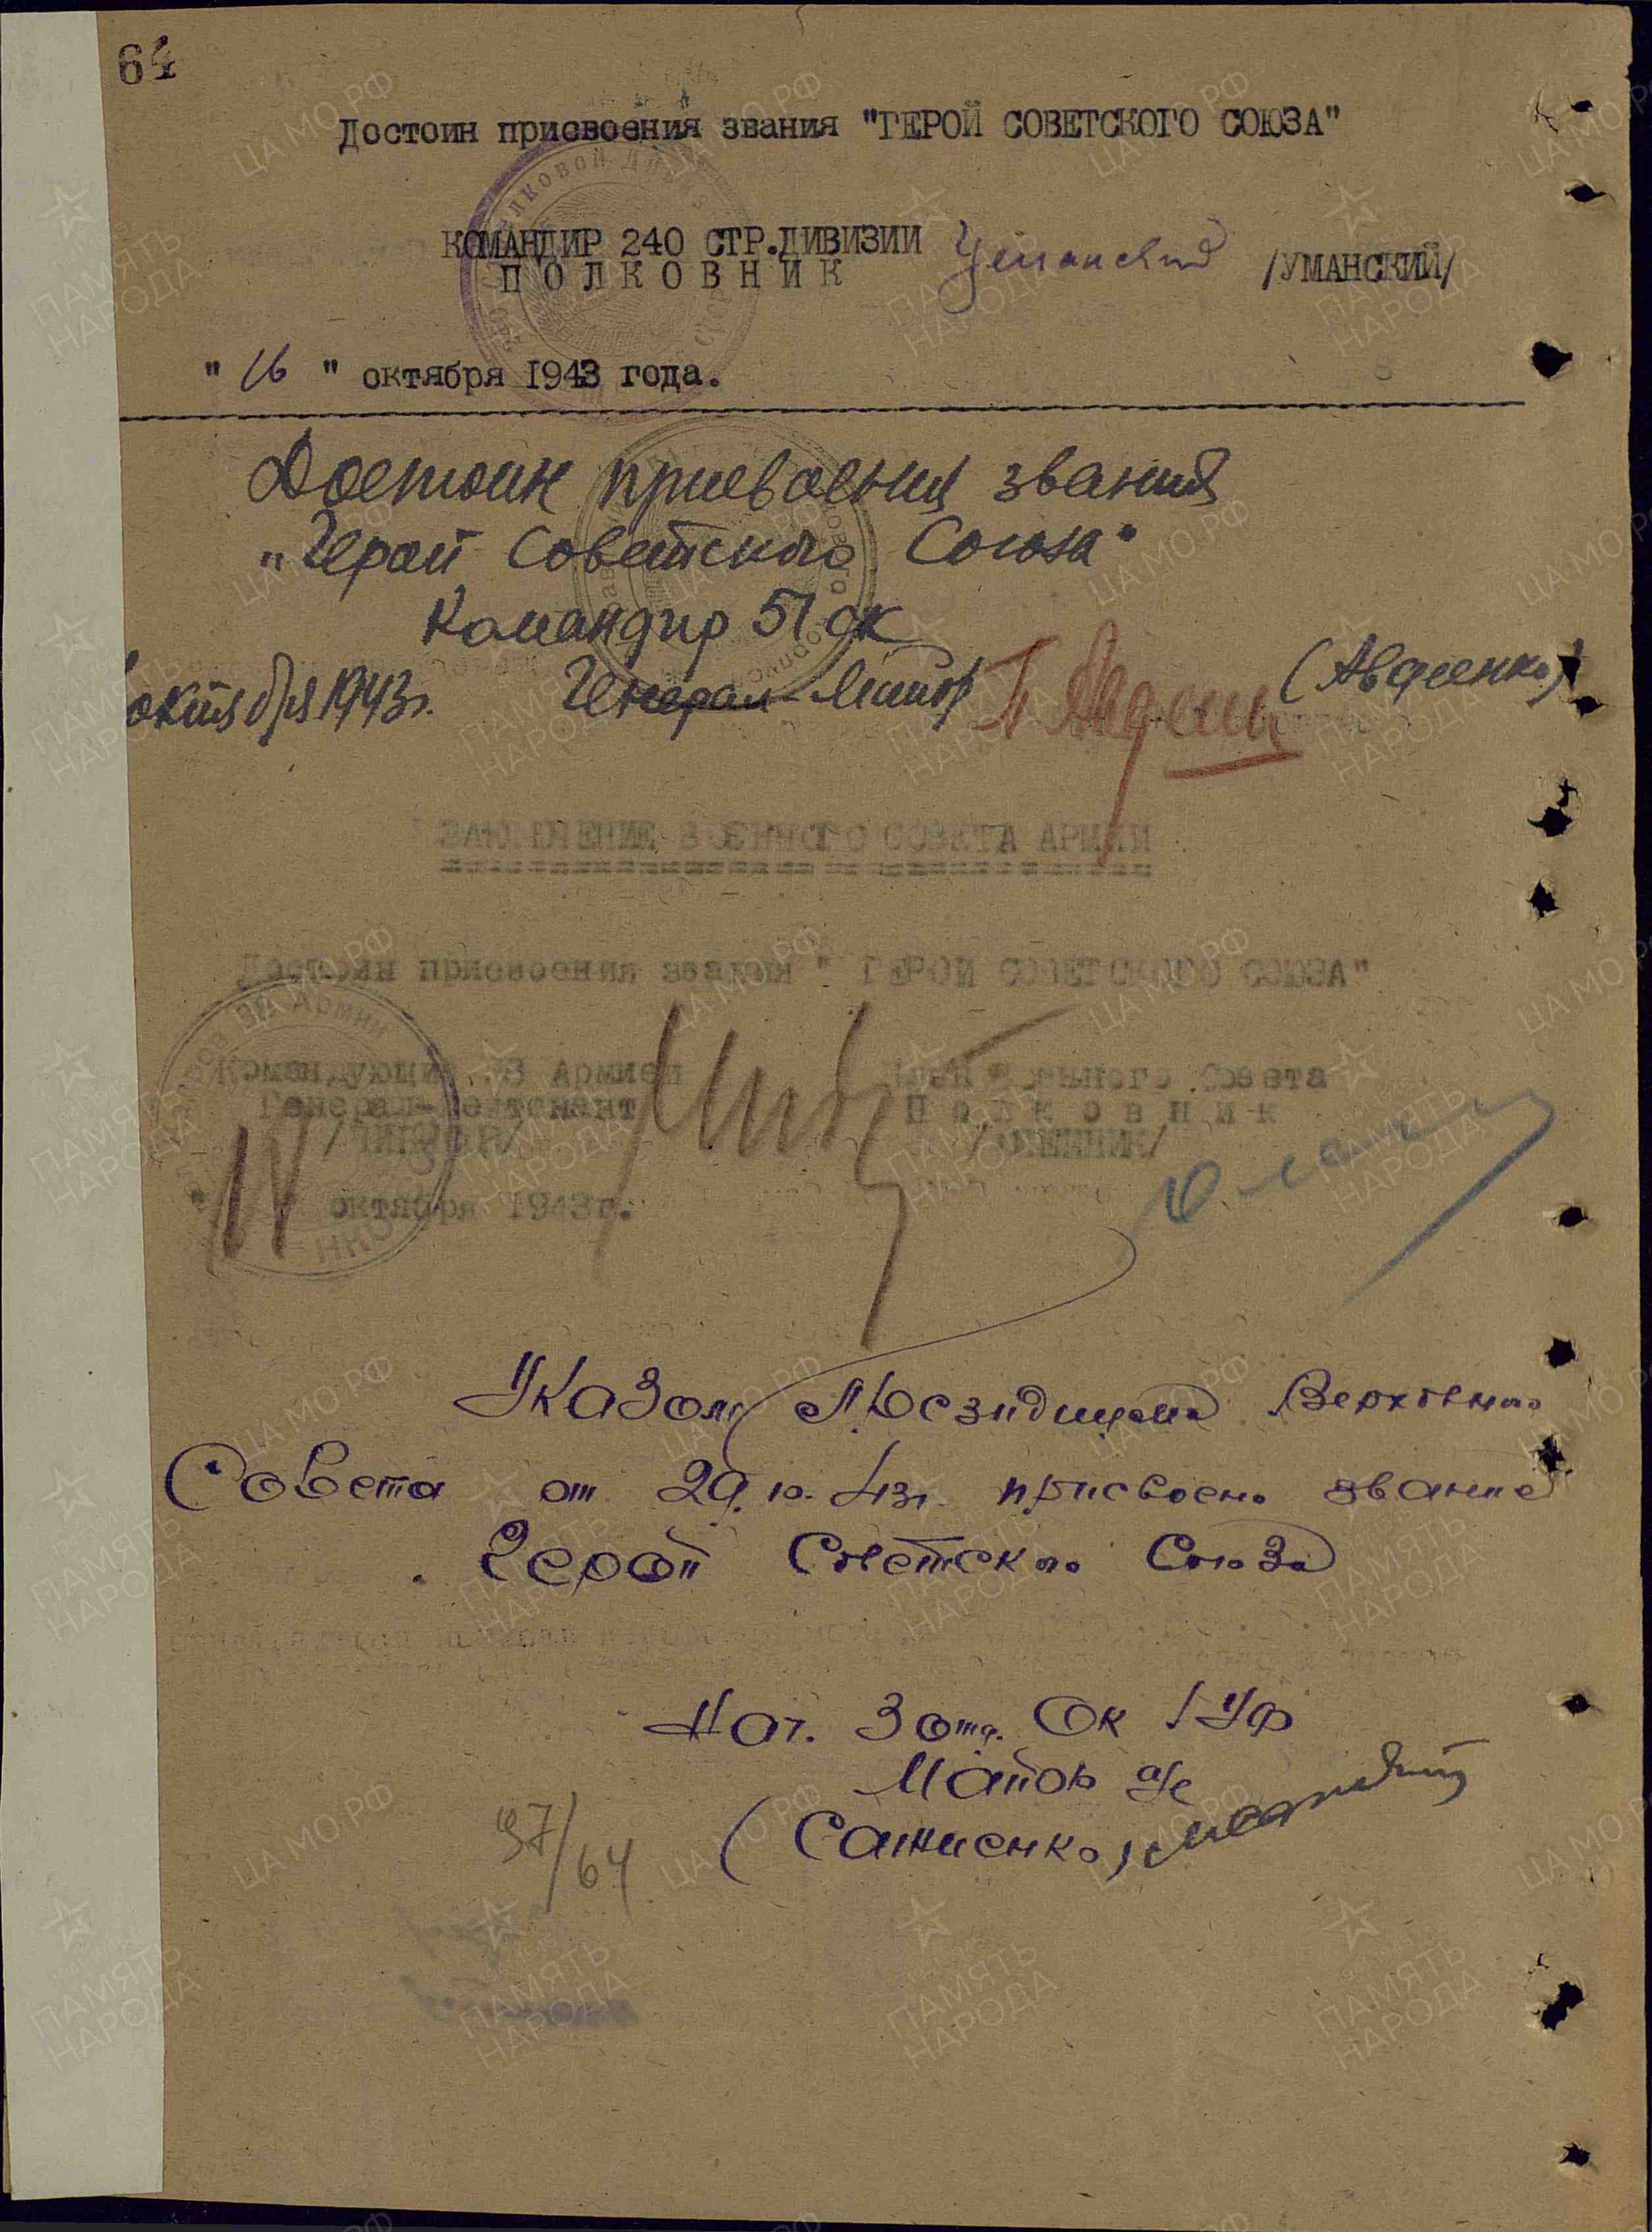 64
Достоин присвоения звания "ГЕРОЙ СОВЕТСКОГО СОЮЗА"
КОМАНДИР 240 СТР.ДИВИЗИИ
ПОЛКОВНИК
/УМАНСКИЙ/
" 16 " октября 1943 года.
Достоин присвоения звания
"Герой Советского Союза"
Командир 51 ск
октября 1943г. Генерал-Майор П Авдеен (Авдеенко)
ЗАКЛЮЧЕНИЕ ВОЕННОГО СОВЕТА АРМИИ
Достоин присвоения звания " ГЕРОЙ СОВЕТСКОГО СОЮЗА"
Командующий 38 Армией Член Военного Совета
Генерал-Лейтенант Полковник
/ЧИБИСОВ/ /ОЛЕЙНИК/
октября 1943г.
Указом Президиума Верховного
Совета от 29.10.43г. присвоено звание
Герой Советского Союза
Нач. 3 отд. ОК 1 УФ
Майор а/с
97/64
ЦА МО РФ
ПАМЯТЬ НАРОДА